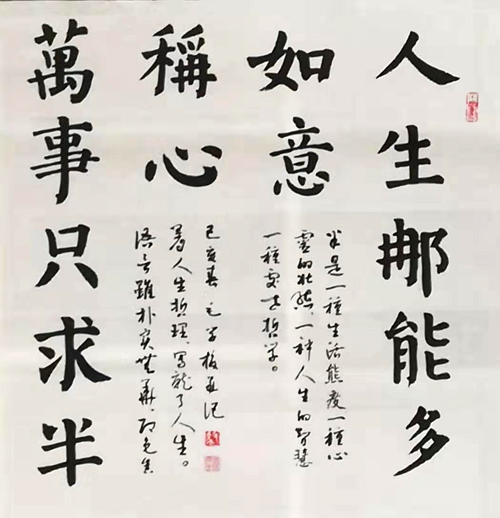 人生那能多
如意
半是一種生活態度一種心
靈的狀態,一种人生的智慧
一種處世哲学。
萬事只求半
稱心
语言雖朴实無華,却包含
着人生哲理,寫就了人生。
己亥春